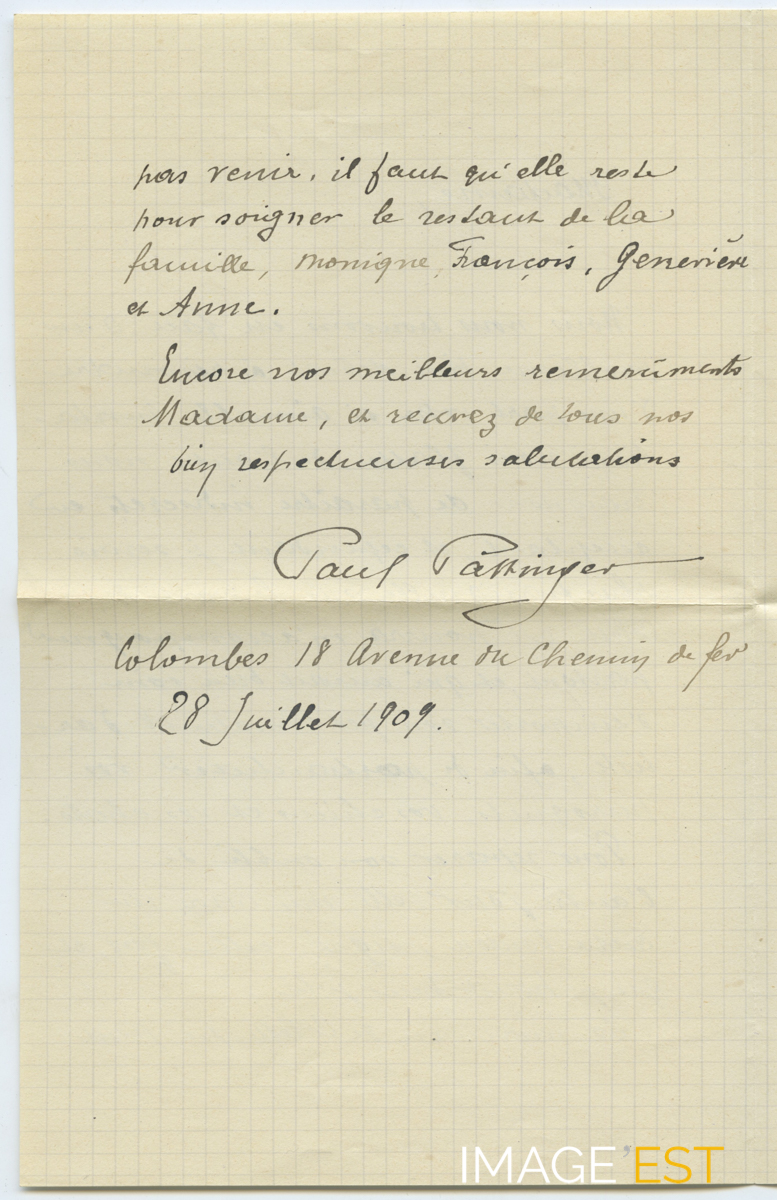 pas venir, il faut qu'elle reste
pour soigner le restant de la
famille, Monique, François, Geneviève
et Anne.
Encore nos meilleurs remercîments
Madame, et recevez de tous nos
bien respectueuses salutations
Paul
Colombes 18 Avenue du Chemin de fer
28 Juillet 1909.
IMAGE EST